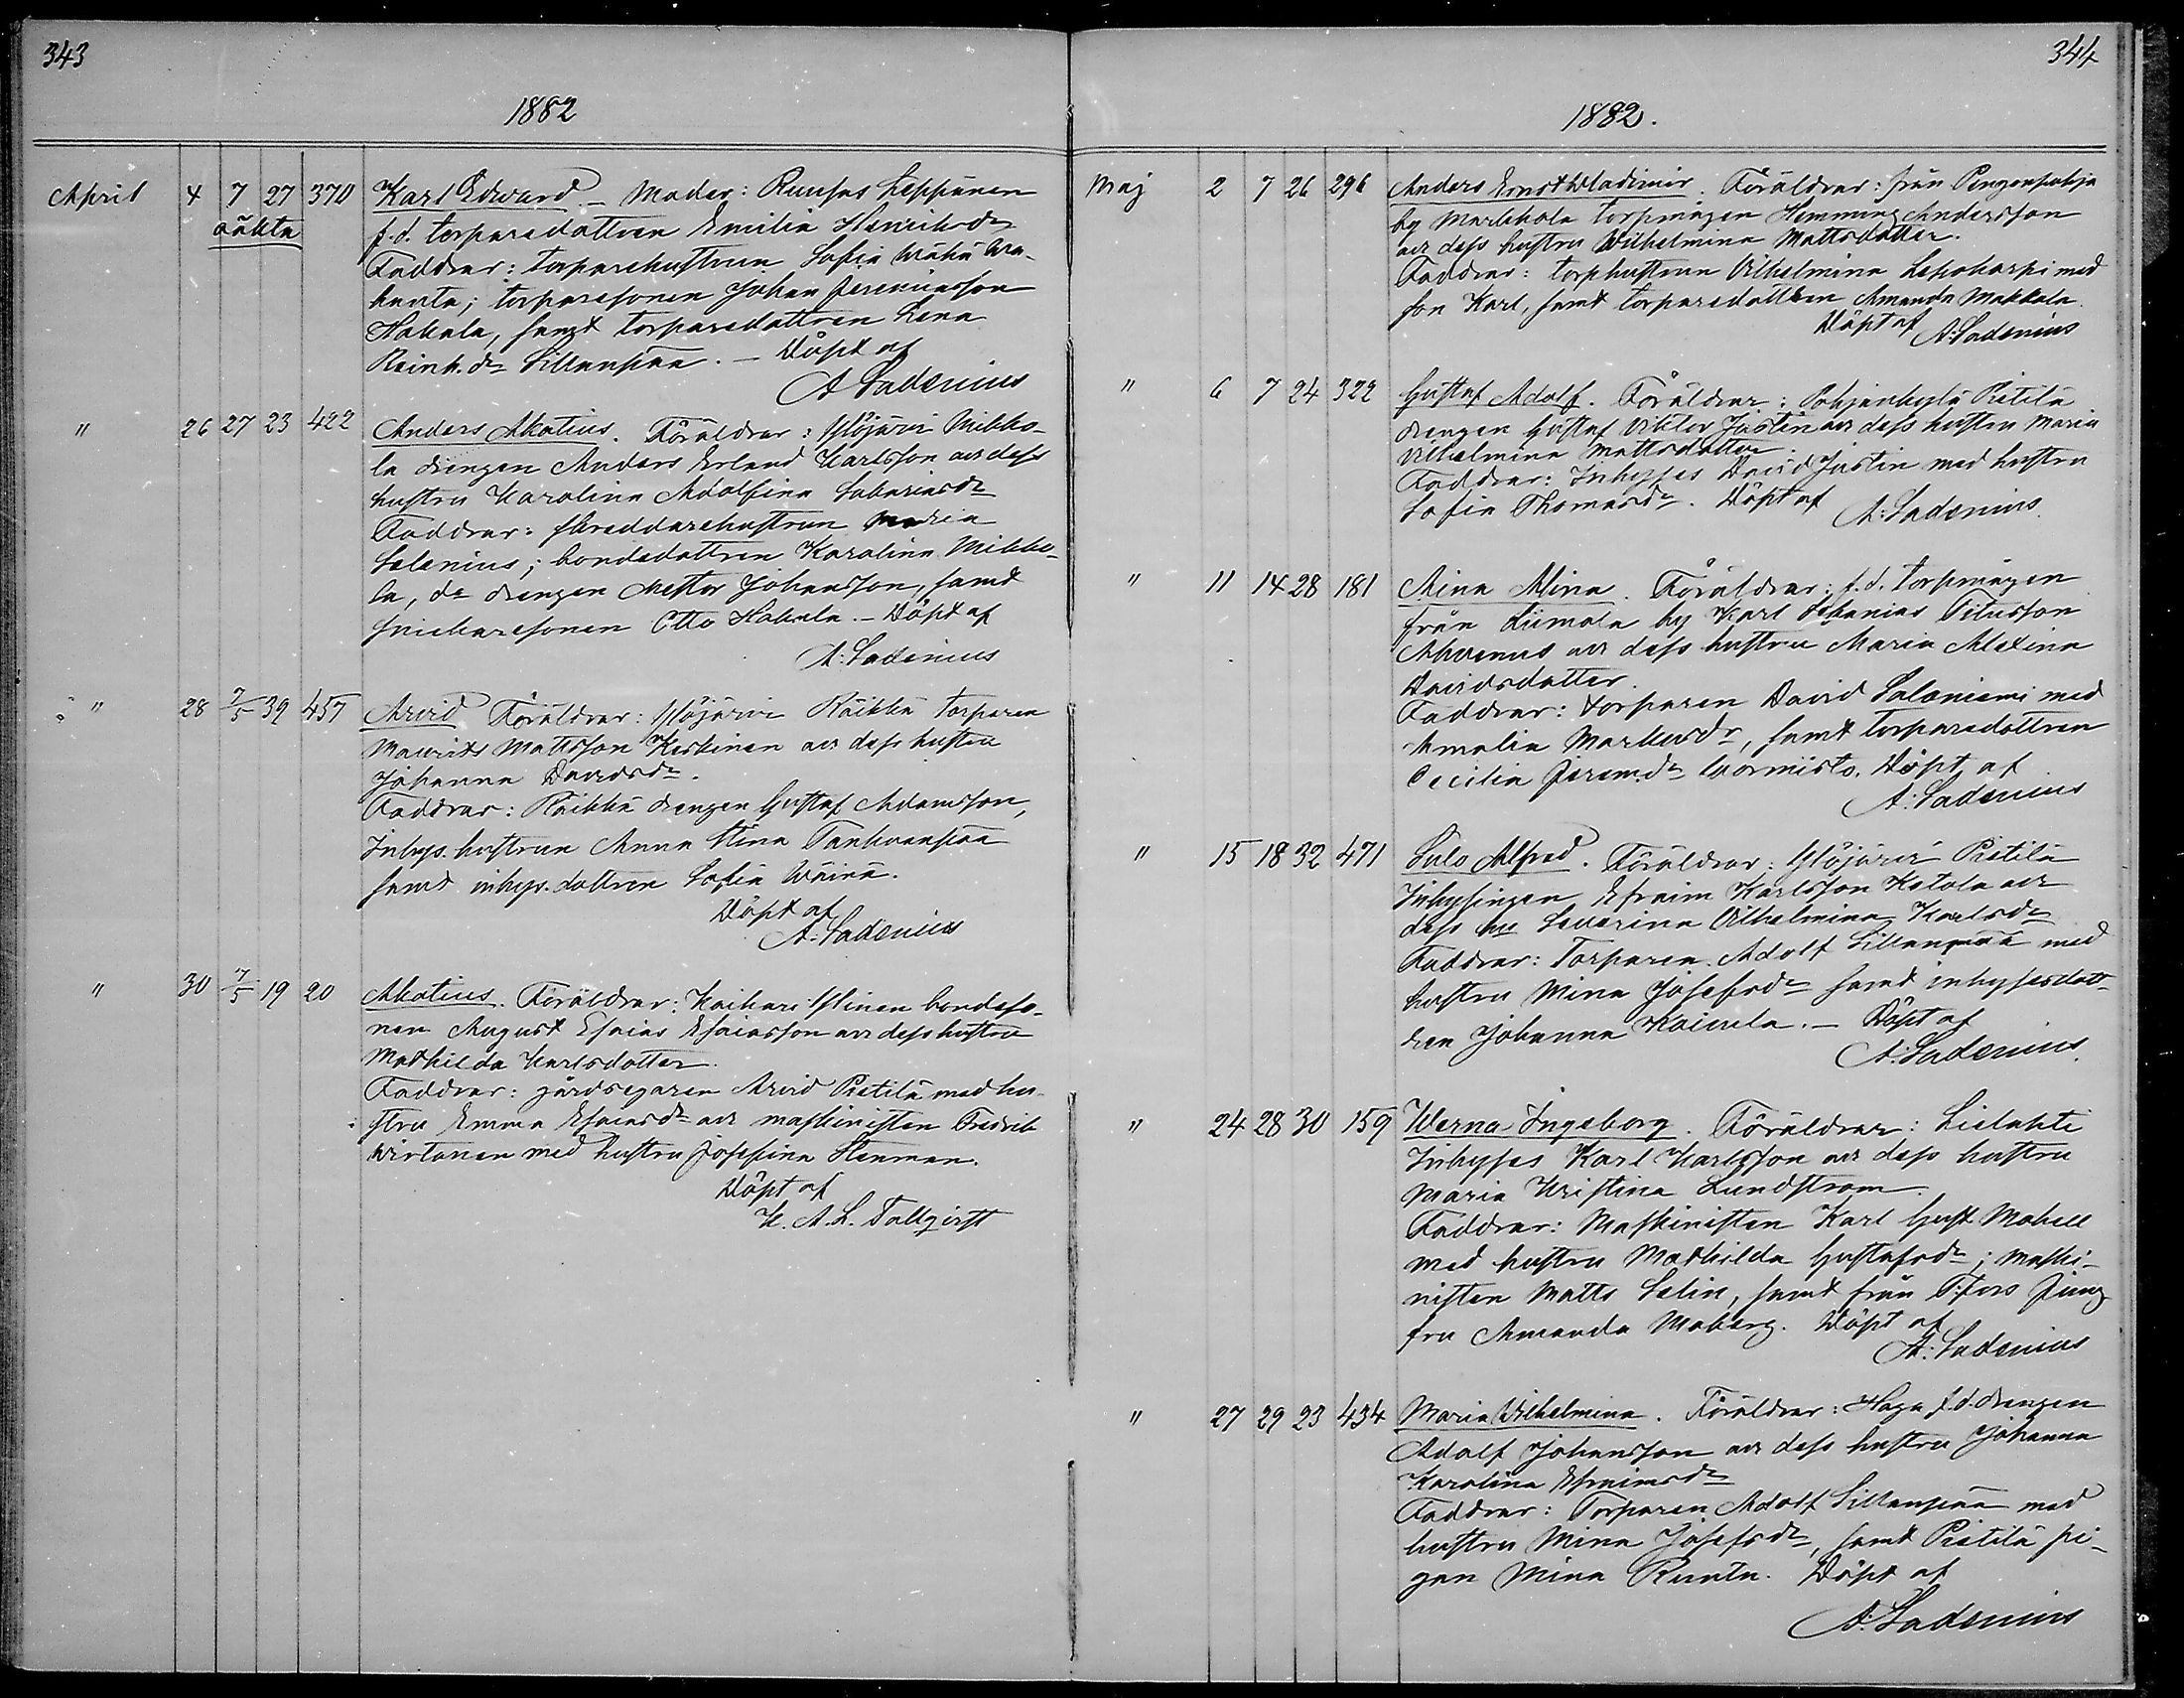 343
1882
April 4 7 27 370 Karl Edvard. – Moder: Runsas Leppänen
oäkta f.d. torparedottren Emilia Henriksdr
Faddrar: torparehustrun Sofia Wähä Wa-
hanta; torparesonen Johan Jeremiasson
Hakala, samt torparedottren Lena
Reinh.dr Sillanpää. – Döpt af
A. Ladenius
" 26 27 23 422 Anders Akatius. Föräldrar: Ylöjärvi Mikko-
la drengen Anders Erland Karlsson och dess
hustru Karolina Adolfina Sakariasdr
Faddrar: skreddarehustrun Maria
Salenius; bondedottren Karolina Mikko-
la, do drengen Nestor Johansson, samt
snickaresonen Otto Hakala. – Döpt af
A. Ladenius
" 28 7/5 39 457 Arvid Föräldrar: Ylöjärvi Räikkä torparen
Maurits Mattsson Keskinen och dess hustru
Johanna Davidsdr.
Faddrar: Räikkä drengen Gustaf Adamsson,
Inhys. hustrun Anna Stina Tanhuanpää
samt inhys. dottren Sofia Wäinä.
Döpt af
A. Ladenius
" 30 7/5 19 20 Akatius. Föräldrar: Kaihari Ylinen bondeso-
nen August Esaias Esaiasson och dess hustru
Mathilda Karlsdotter.
Faddrar: gårdsegaren Arvid Pietilä med hu-
stru Emma Esaiasdr och maskinisten Fredrik
Wirtanen med hustru Josefina Stenman.
Döpt af
K. A. L. Tallqvist
344
1882.
Maj 2 7 26 296 Anders Ernst Wladimir. Föräldrar: från Pengonpohja
by Markkola torpmågen Hemming Andersson
och dess hustru Wilhelmina Mattsdotter.
Faddrar: torphustrun Vilhelmina Lepokorpi med
son Karl, samt torparedottren Amanda Makkola.
Döpt af A. Ladenius
" 6 7 24 322 Gustaf Adolf. Föräldrar: Pohjankylä Pietilä
drengen Gustaf Viktor Justin och dess hustru Maria
Vilhelmina Mattsdotter.
Faddrar: Inhyses David Justin med hustru
Sofia Thomasdr. Döpt af A. Ladenius.
" 11 14 28 181 Aina Alina. Föräldrar: f.d. torpmågen
från Liimola by Karl Zakarias Titusson
Ahvenus och dess hustru Maria Alexina
Davidsdotter.
Faddrar: torparen David Saloniemi med
Amalia Markusdr, samt torparedottren
Cecilia Jeremdr Wormisto. Döpt af
A. Ladenius
" 15 18 32 471 Sulo Alfred. Föräldrar: Ylöjärvi Pietilä
Inhysingen Efraim Karlsson Ketola och
dess hu Severina Vilhelmina Karlsdr
Faddrar: Torparen Adolf Sillanpää med
hustru Mina Josefsdr samt inhysesdott-
ren Johanna Koivula. – Döpt af
A. Ladenius.
" 24 28 30 159 Werna Ingeborg. Föräldrar: Lielahti
Inhyses Karl Karlsson och dess hustru
Maria Kristina Lundstrom.
Faddrar: Maskinisten Karl Gust. Mobell
med hustru Mathilda Gustafsdr; maski-
nisten Matts Selin, samt från T:fors Jung-
fru Amanda Moberg. Döpt af
A. Ladenius
" 27 29 23 434 Maria Vilhelmina. Föräldrar: Haga f.d. drengen
Adolf Johansson och dess hustru Johanna
Karolina Efraimsdr
Faddrar: Torparen Adolf Sillanpää med
hustru Mina Josefsdr, samt Pietilä pi-
gan Mina Ranta. Döpt af
A. Ladenius